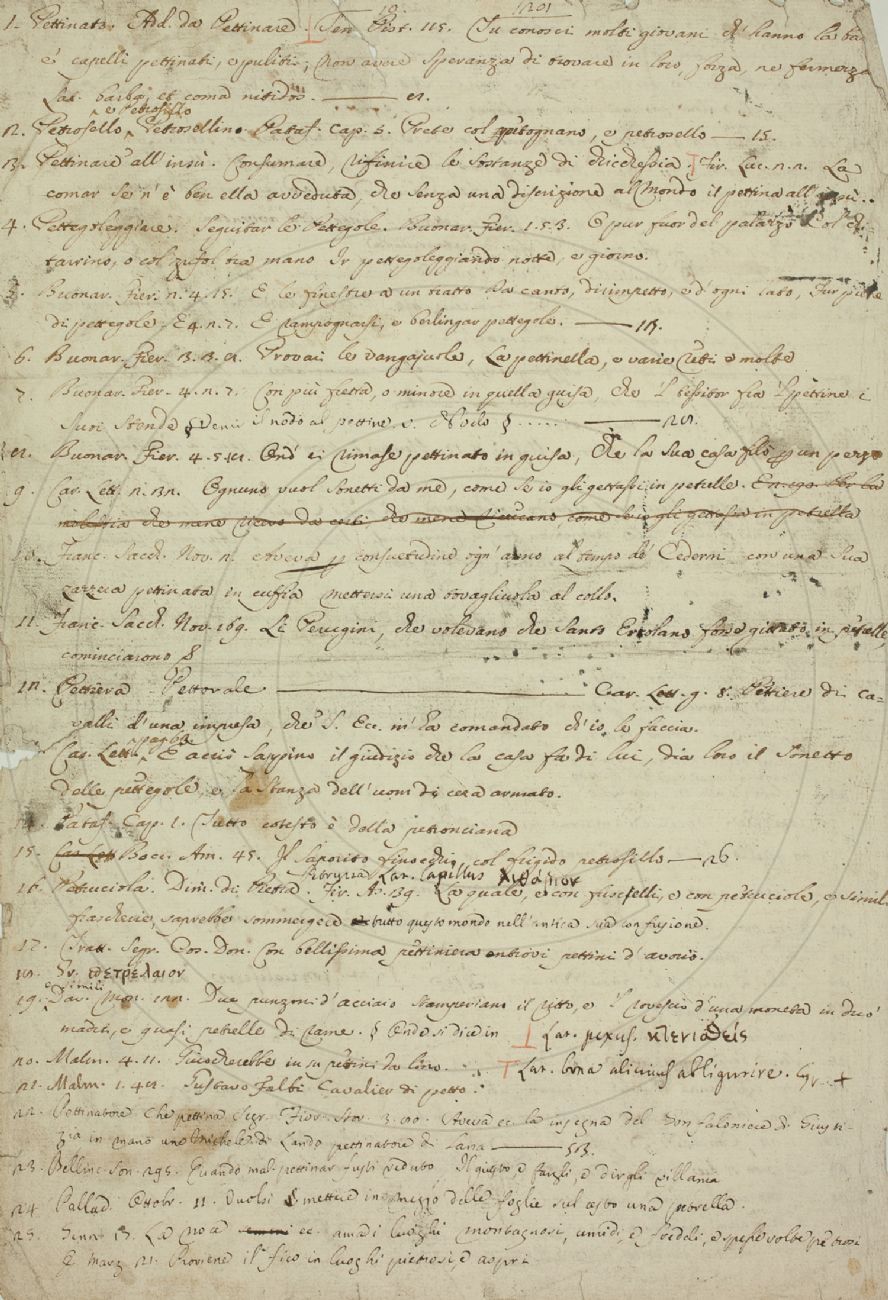 1201
1. Pettinato Add. da Pettinare. Sen. Pist. 115. Tu conosci molti giovani ch' hanno la bar
e' capelli pettinati, e puliti; non avere speranza di trovare in loro, forza, ne fermezza
Lat. barba, et coma nitidos.
e Petrosillo
2. Petrosello, Petrosellino Pataf. Cap. 5. Prete col pitognano, e petrosello — 15.
3. Pettinare all'insù. Consumare, rifinire le sostanze di chicchessia. Fir. Luc. La
comar se n'è ben ella avveduta, che senza una discrizione al Mondo il pettina all'insù.
4. Pettegoleggiare. Seguitar le Pettegole. Buonar. Fier. 1.5.3. E pur fuor del palazzo col chi
tarrino, o col zufol tra mano Ir pettegoleggiando notte, e giorno.
5. Buonar. Fier. 4. 15. E le finestre a un tratto da canto, dirimpetto, e d'ogni lato, Fur piene
di pettegole, E 4. 7. E rampognarsi, e berlingar pettegole.
6. Buonar. Fier. 3. 3. Trovai le vangajuole, La pettinella, e varie reti e molte
7. Buonar. Fier. 4. 7. Con più fretta, o minore in quella guisa, che 'l tessitor fra 'l pettine i
suoi stende § Venir il nodo al pettine. v. Nodo §
Buonar. Fier. 4. 5. Ond' ei rimase pettinato in guisa, che la sua casa filò un pezzo
9. Car. Lett. Ognuno vuol sonetti da me, come se io gli gettassi in petrelle.
come se io gli gettassi in petrella
10. Franc. Sacch. Nov. Aveva p consuetudine ogn' anno al tempo de' Cederni con una sua
zazzera pettinata in cuffia mettersi una tovagliuola al collo.
11. Franc. Sacch. Nov. 169. Li Perugini, che volevano che Santo Ercolano fosse gittato in petrelle,
cominciarono §
12. Pettiera Pettorale — Car. Lett. 9. 8. Pettiere di ca=
valli d'una impresa, che S. Ec. m'ha comandato ch'io le faccia.
Car. Lett. E acciò sappino il giudizio che la casa fa di lui, dia loro il Sonetto
delle pettegole, e la stanza dell'uom di cera armato.
14. Pataf. Cap. 1. Tutto cotesto è dalla petronciana
15. Car. Lett Bocc. Am. 45. Il saporito finocchio, col frigido petrosillo — 26.
Lat. Lapillus
16. Petruciola. Dim. di Pietra. Fir. As. 139. La quale, e con fuscelli, e con petruciole, e simil.
frascherie, saprebbe sommergere tutto questo mondo nell'antica sua confusione.
17. Tratt. Segr. Cos. Don. Con bellissima pettiniera entrovi pettini d'avorio.
18. Gr. πετρελαιον
o simili
19. Dav. Mon. Due punzoni d'acciaio stamperiano il ritto, e 'l rovescio d'una moneta in due
madri, e quasi petrelle di rame. § Onde si dice in Lat. pexus. κτενισθείς
20. Malm. 4. 11. Giuocherebbe in su pettini da lino. Lat. bona alicujus abligurire.
21. Malm. 1. Gustavo Falbi Cavalier di petto.
22. Pettinatore Che pettina Segr. Fior. Stor. 3. Aveva ec. la insegna del Gonfaloniere di Giusti-
zia in mano uno Michele di Lando pettinatore di lana
23. Bellinc. Son. 295. Quando mal pettinar fusti veduto Il giusto, e fargli, e dirgli villania
24. Pallad. Ottobr. 11. Vuolsi mettere in mezzo delle foglie sul cesto una petrella.
25. Genn. 15. La noce ec. ama i luoghi montagnosi, umidi, e freddi, e spesse volte petrosi
E Marz. 21. Proviene il fico in luoghi pietrosi, e aspri